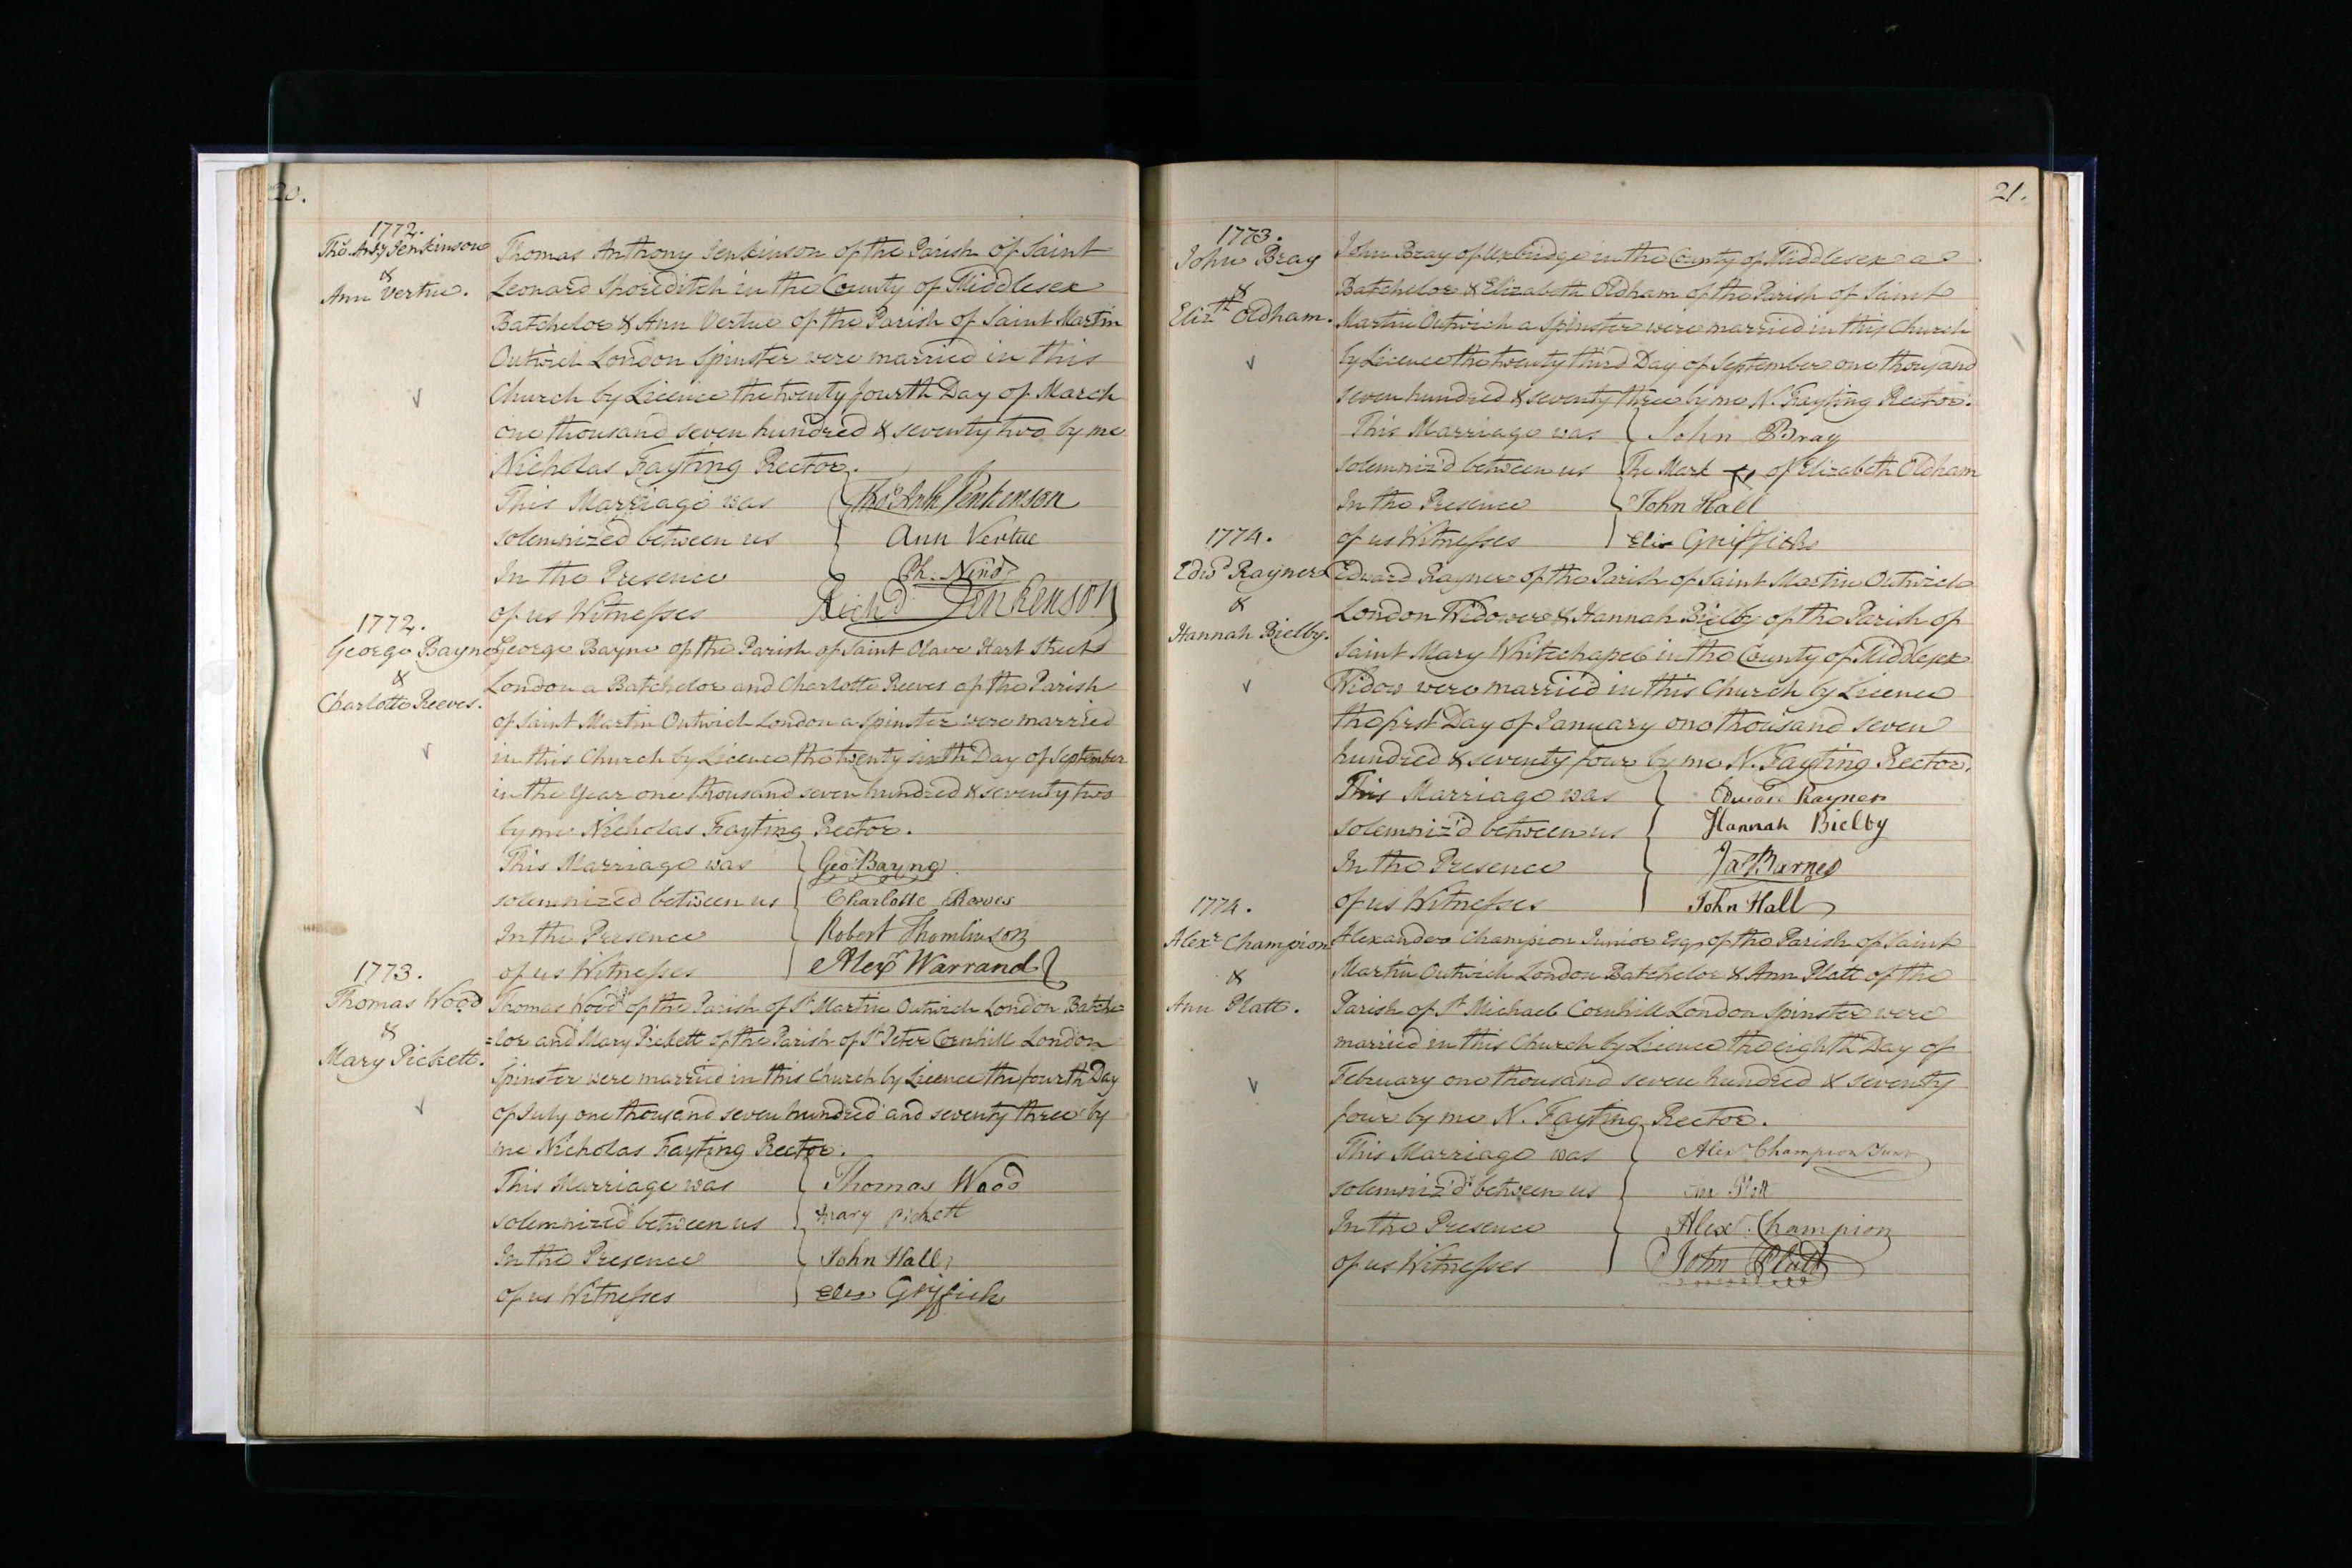 20.
1772.
Tho.s Ant.y Jenkinson
&
Ann Vertue.
Thomas Anthony Jenkinson of the Parish of Saint
Leonard Shoreditch in the County of Middlesex
Batchelor & Ann Vertue of the Parish of Saint Martin
Outwich London Spinster were married in this
Church by Licence the twenty fourth Day of March
one thousand seven hundred & seventy two by me
Nicholas Fayting Rector.
This Marriage was { Tho.s Anth Jenkenson
solemnized between us } Ann Vertue
In the Presence Ph. Nind
of us Witnesses Rich'd Jenkenson
1772.
George Bayne
&
Charlotte Reeves.
George Bayne of the Parish of Saint Olave Hart Street
London a Batchelor and Charlotte Reeves of the Parish
of Saint Martin Outwich London a Spinster were married
in this Church by Licence the twenty sixth Day of September
in the Year one thousand seven hundred & seventy two
by me Nicholas Fayting Rector.
This Marriage was { Geo: Bayne
solemnized between us } Charlotte Reeves
In the Presence { Robert Thomlinson
of us Witnesses } Alex.r Warrand
1773.
Thomas Wood
&
Mary Pickett.
Thomas Wood of the Parish of S.t Martin Outwich London Batche
=lor and Mary Pickett of the Parish of S.t Peter Cornhill London
Spinster were married in this Church by Licence the fourth Day
of July one thousand seven hundred and seventy three by
me Nicholas Fayting Rector.
This Marriage was { Thomas Wood
solemnized between us } Mary Pickett
In the Presence { John Hall
of us Witnesses } Eliz Griffith
21.
1773.
John Bray
&
Eliz.th Oldham.
John Bray of Uxbridge in the County of Middlesex a
Batchelor & Elizabeth Oldham of the Parish of Saint
Martin Outwich a Spinster were married in this Church
by Licence the twenty third Day of September one thousand
seven hundred & seventy three by me N. Fayting Rector.
This Marriage was { John Bray
solemniz'd between us The Mark + of Elizabeth Oldham
In the Presence { John Hall
of us Witnesses } Eliz Griffiths
1774.
Edw.d Rayner
&
Hannah Bielby.
Edward Rayner of the Parish of Saint Martin Outwich
London Widower & Hannah Bielby of the Parish of
Saint Mary Whitechapel in the County of Middlesex
Widow were married in this Church by Licence
the first Day of January one thousand seven
hundred & seventy four by me N. Fayting Rector.
This Marriage was { Edward Rayner
solemniz'd between us { Hannah Bielby
In the Presence { Ja.s Barnes
of us Witnesses } John Hall
1774.
Alex.r Champion
&
Ann Platt.
Alexander Champion Junior Esq.r of the Parish of Saint
Martin Outwich London Batchelor & Ann Platt of the
Parish of S.t Michael Cornhill London Spinster were
married in this Church by Licence the eighth Day of
February one thousand seven hundred & seventy
four by me N. Fayting Rector.
This Marriage was { Alex.r Champion Jun.r
solemniz'd between us { Ann Platt
In the Presence { Alex.r Champion
of us Witnesses } John Platt